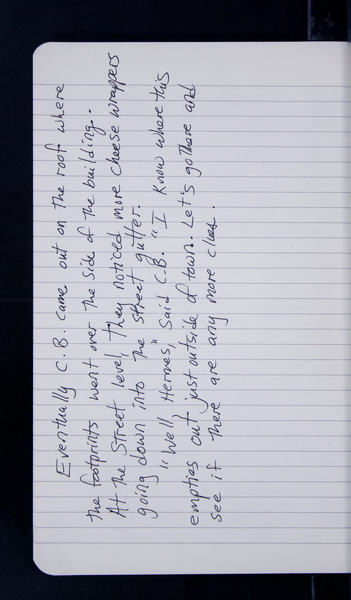 Eventually C.B. came out on the roof where
the footprints went over the side of the building.
At the street level, they noticed more cheese wrappers
going down into the street gutter.
"Well Hermes," said C.B. "I know where this
empties out just outside of town. Let's go there and
see if there are any more clues.